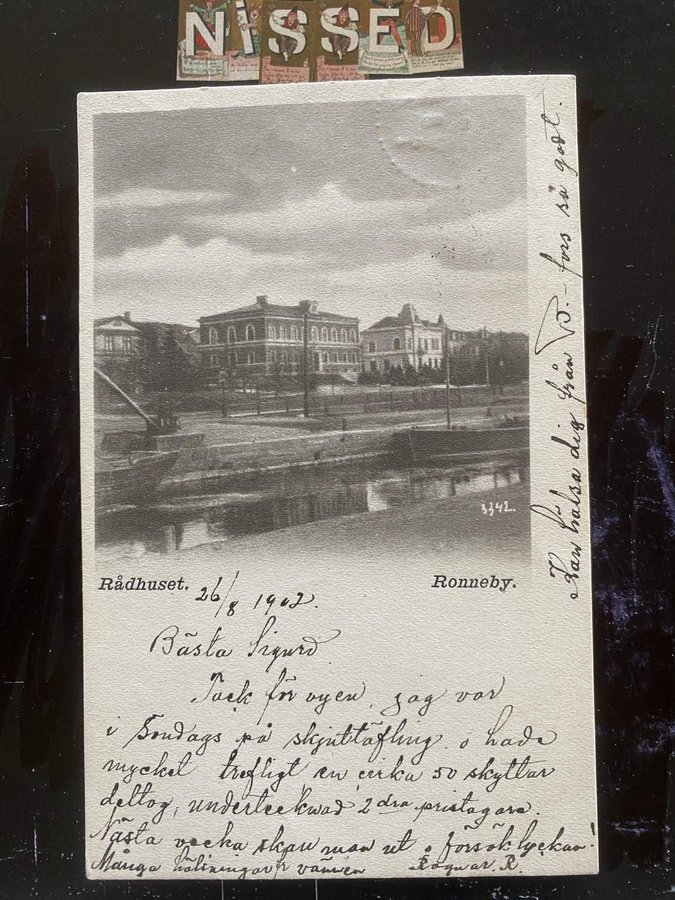 NISSED
3342.
Rådhuset. Ronneby.
26/8 1902.
Bästa Sigurd
Tack för vyen, jag var
i Söndags på skjuttäfling o hade
mycket trefligt en cirka 50 skyttar
deltog, undertecknad 2dra pristagare.
Nästa vecka skall man ut o försök lyckan!
Många hälsningar fr vännen Ragnar R.
Kan hälsa dig från D. - fors så godt.